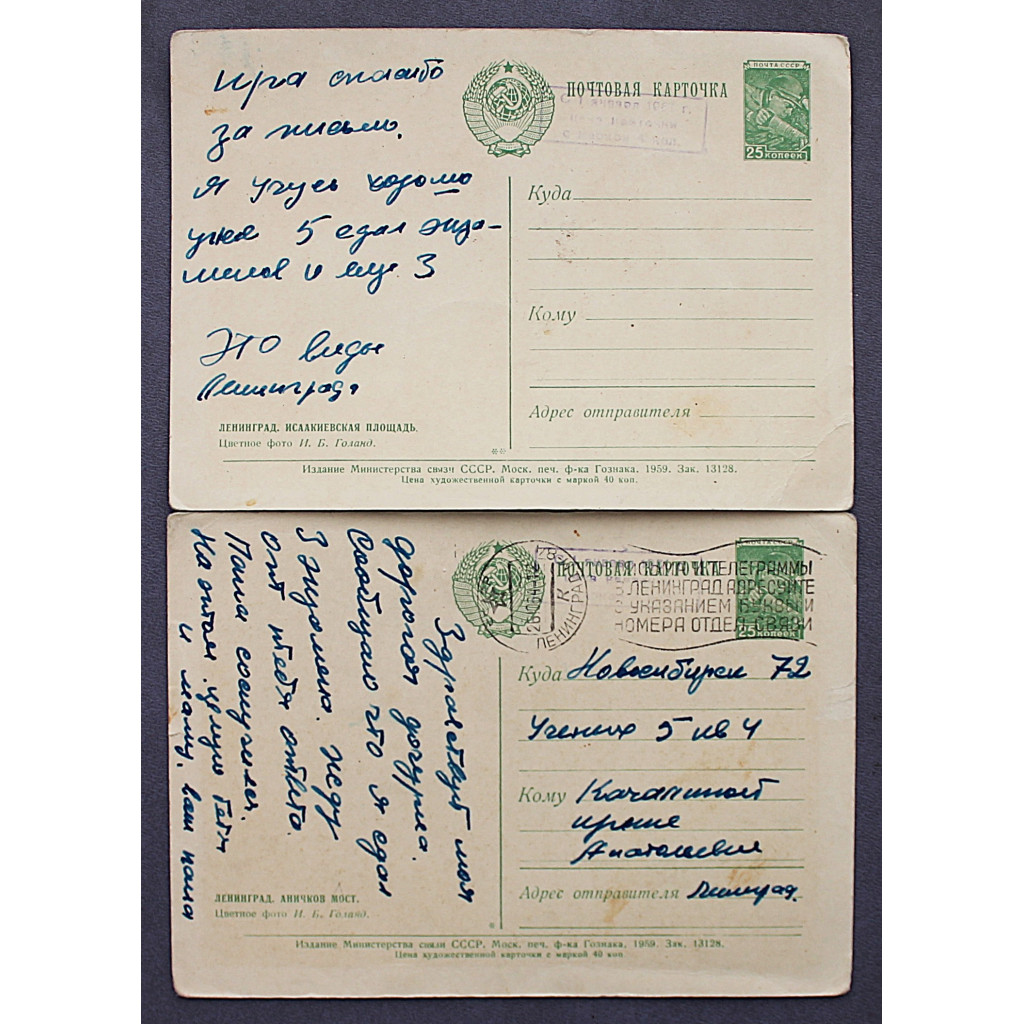 Ира спасибо
за письмо.
Я учусь хорошо
уже 5 сдал экза-
менов и еще 3
Это виды
Ленинграда
ЛЕНИНГРАД. ИСААКИЕВСКАЯ ПЛОЩАДЬ.
Цветное фото И. Б. Голанд.
ПОЧТОВАЯ КАРТОЧКА
ПОЧТА СССР
25 КОПЕЕК
Куда
Кому
Адрес отправителя
Издание Министерства связи СССР. Моск. печ. ф-ка Гознака. 1959. Зак. 13128.
Цена художественной карточки с маркой 40 коп.
Здравствуй моя
дорогая дочурка.
Сообщаю что я сдал
3 экзамена. Жду
от тебя ответа.
Папа соскучился.
целую тебя
и маму. ваш папа
ЛЕНИНГРАД. АНИЧКОВ МОСТ.
Цветное фото И. Б. Голанд.
ПОЧТОВАЯ КАРТОЧКА
ПОЧТА СССР
25 КОПЕЕК
ЛЕНИНГРАД
ТЕЛЕГРАММЫ
В ЛЕНИНГРАД АДРЕСУЙТЕ
С УКАЗАНИЕМ БУКВЫ И
НОМЕРА ОТДЕЛ. СВЯЗИ
Куда Новосибирск 72
5 кв 4
Кому
Ирине
Анатольевне
Адрес отправителя Ленинград.
Издание Министерства связи СССР. Моск. печ. ф-ка Гознака. 1959. Зак. 13128.
Цена художественной карточки с маркой 40 коп.